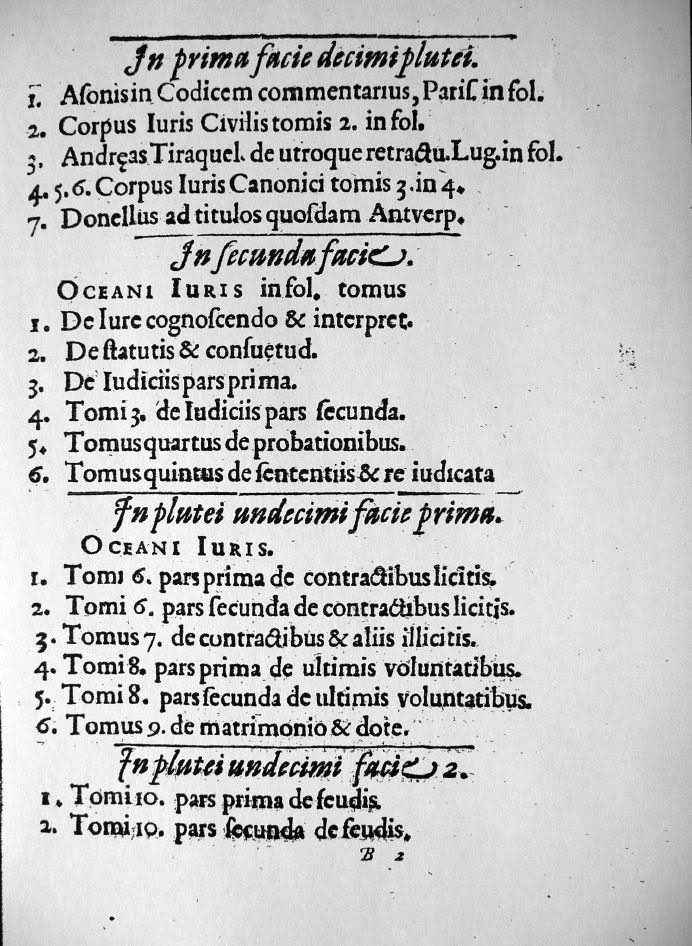 In prima facie decimi plutei.
1. Asonis in Codicem commentarius, Pariſ. in fol.
2. Corpus Iuris Civilis tomis 2. in fol.
3. Andręas Tiraquel. de utroque retractu. Lug. in fol.
4. 5. 6. Corpus Iuris Canonici tomis 3. in 4.
7. Donellus ad titulos quoſdam Antverp.
In ſecunda facie.
OCEANI IURIS in fol. tomus
1. De Iure cognoſcendo & interpret.
2. De ſtatutis & conſuetud.
3. De Iudiciis pars prima.
4. Tomi 3. de Iudiciis pars ſecunda.
5. Tomus quartus de probationibus.
6. Tomus quintus de ſententiis & re iudicata
In plutei undecimi facie prima.
OCEANI IURIS.
1. Tomi 6. pars prima de contractibus licitis.
2. Tomi 6. pars ſecunda de contractibus licitis.
3. Tomus 7. de contractibus & aliis illicitis.
4. Tomi 8. pars prima de ultimis voluntatibus.
5. Tomi 8. pars ſecunda de ultimis voluntatibus.
6. Tomus 9. de matrimonio & dote.
In plutei undecimi facie 2.
1. Tomi 10. pars prima de feudis.
2. Tomi 10. pars ſecunda de feudis.
B 2